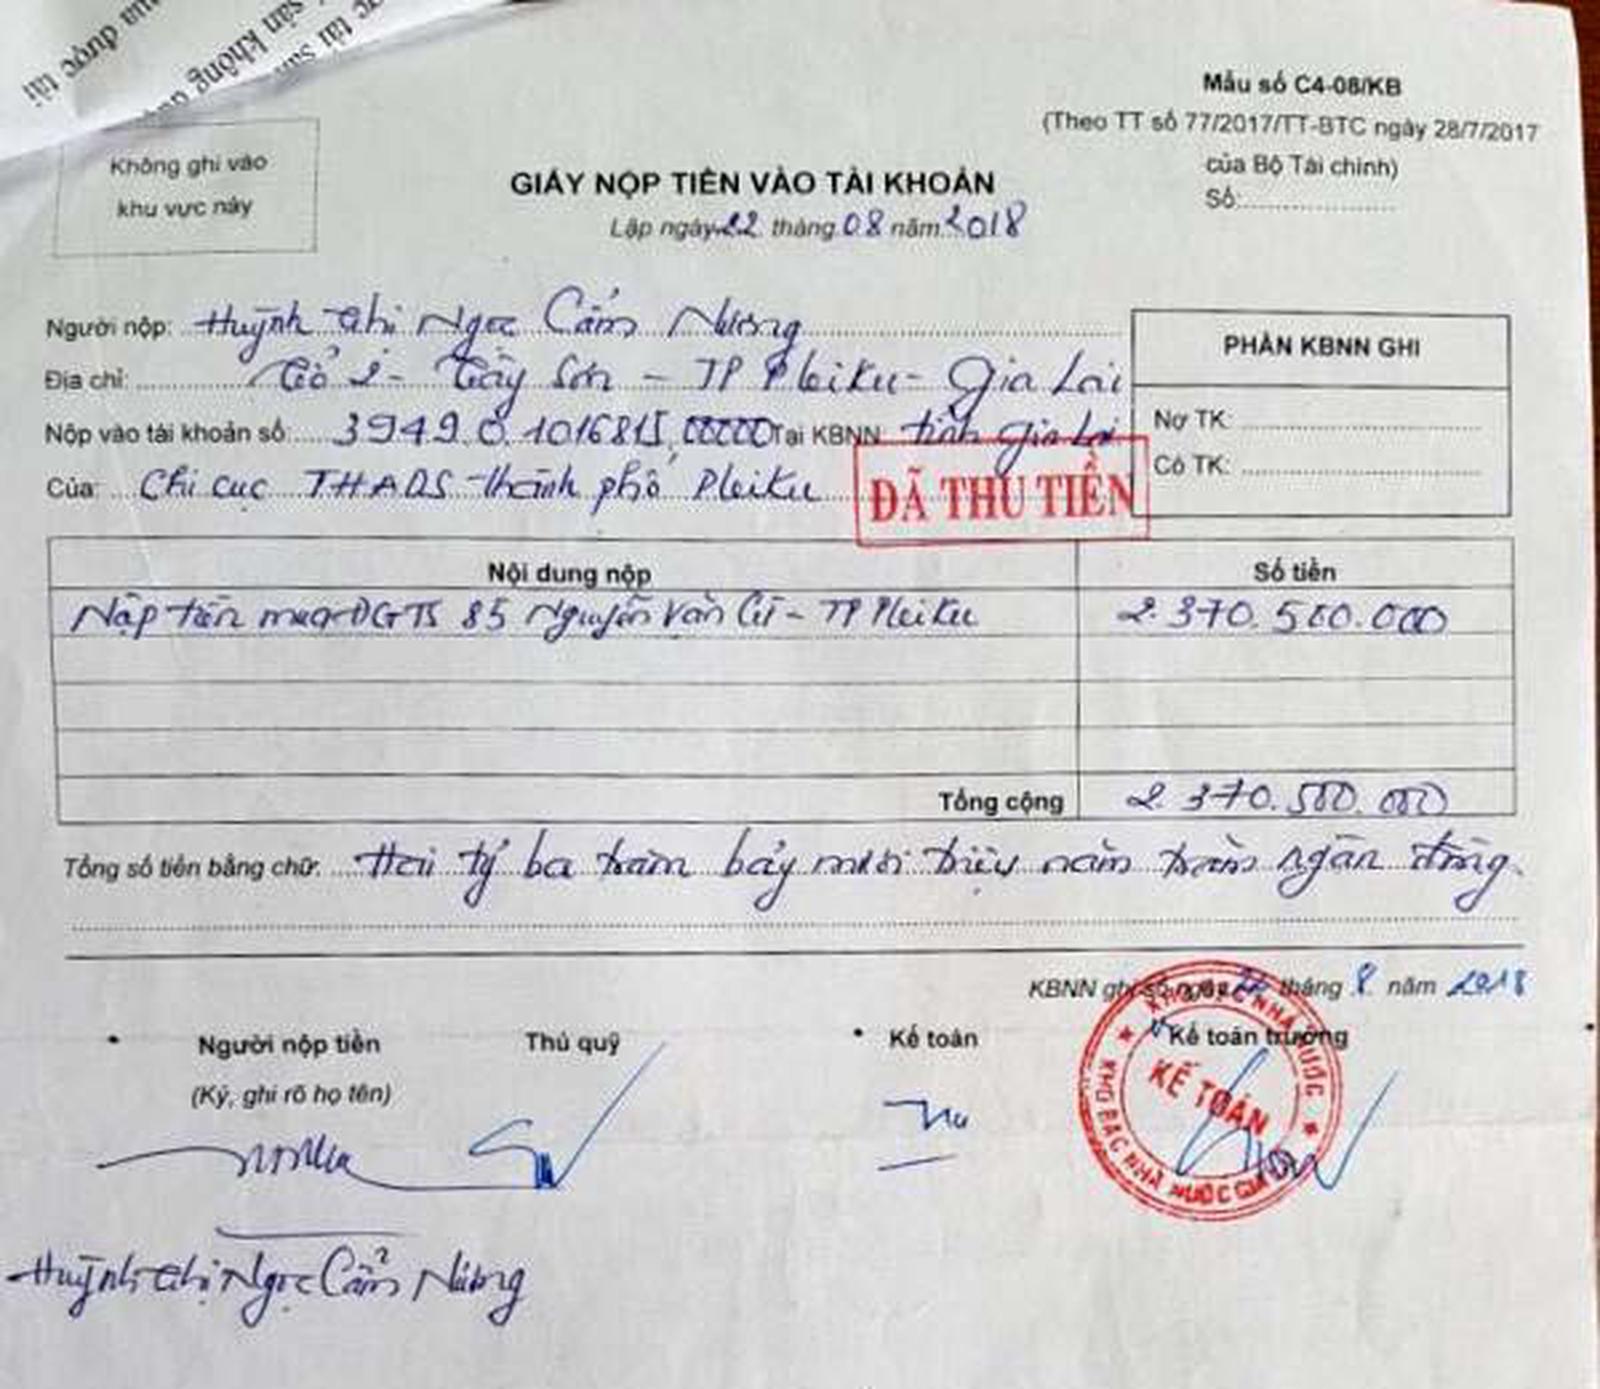 ua được tài
sản không
ợc tài
Mẫu số C4-08/KB
(Theo TT số 77/2017/TT-BTC ngày 28/7/2017
của Bộ Tài chính)
Số:
Không ghi vào
khu vực này
GIẤY NỘP TIỀN VÀO TÀI KHOẢN
Lập ngày 22 tháng 08 năm 2018
Người nộp: Huỳnh Thị Ngọc Cẩm Nương
Địa chỉ: Tổ 2 - Tây Sơn - TP Pleiku - Gia Lai
Nộp vào tài khoản số: 3949.0.1016815.00000 Tại KBNN: tỉnh Gia Lai
Của: Chi cục THADS thành phố Pleiku
ĐÃ THU TIỀN
PHẦN KBNN GHI
Nợ TK:
Có TK:
Nội dung nộp Số tiền
Nộp tiền mua ĐGTS 85 Nguyễn Văn Cừ - TP Pleiku 2.370.500.000
Tổng cộng 2.370.500.000
Tổng số tiền bằng chữ: Hai tỷ ba trăm bảy mươi triệu năm trăm ngàn đồng
KBNN ghi sổ ngày 22 tháng 8 năm 2018
Người nộp tiền Thủ quỹ Kế toán Kế toán trưởng
(Ký, ghi rõ họ tên)
KHO BẠC NHÀ NƯỚC
KẾ TOÁN
KHO BẠC NHÀ NƯỚC GIA
Huỳnh Thị Ngọc Cẩm Nương